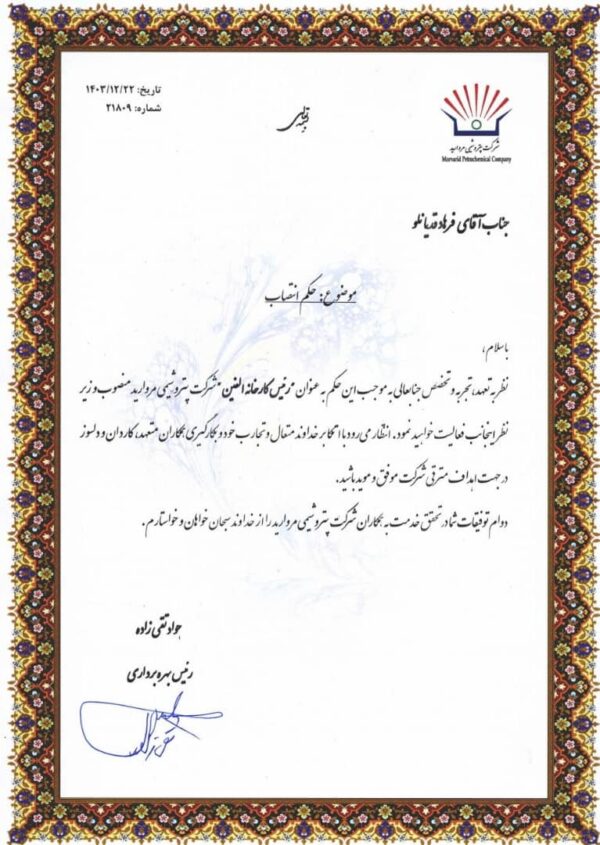 تاریخ: ۱۴۰۳/۱۲/۲۲
شماره: ۲۱۸۰۹
بسمه تعالی
شرکت پتروشیمی مروارید
Morvarid Petrochemical Company
جناب آقای فرهاد قدیانلو
موضوع: حکم انتصاب
باسلام،
نظر به تعهد، تجربه و تخصص جنابعالی به موجب این حکم به عنوان "رئیس کارخانه الفین" شرکت پتروشیمی مروارید منصوب و زیر
نظر اینجانب فعالیت خواهید نمود. انتظار می رود با اتکا بر خداوند متعال و تجارب خود و بکارگیری همکاران متعهد، کاردان و دلسوز
در جهت اهداف مترقی شرکت موفق و موید باشید.
دوام توفیقات شما در تحقق خدمت به همکاران شرکت پتروشیمی مروارید را از خداوند سبحان خواهان و خواستارم.
جواد تقی زاده
رئیس بهره برداری